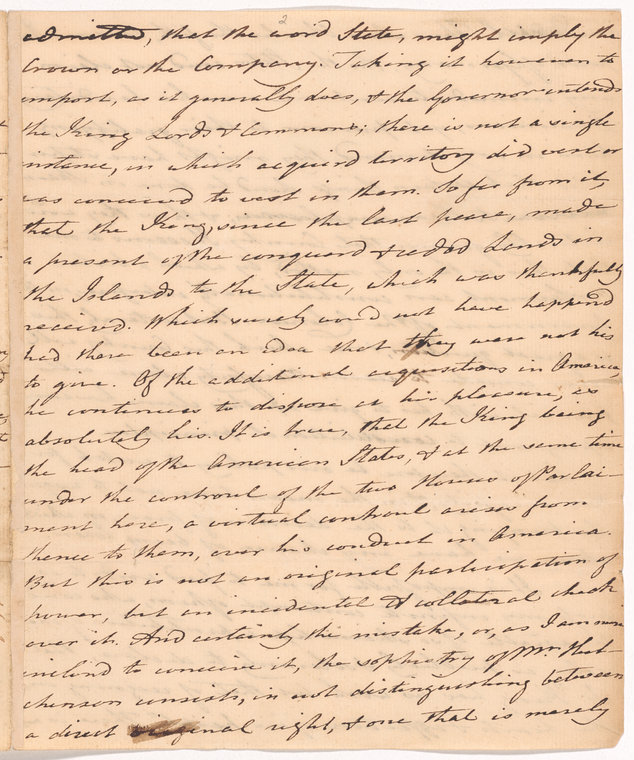 2
admitted, that the word State, might imply the
Crown or the Company. Taking it however to
import, as it generally does, & the Governor intends
the King Lords & Commons; there is not a single
instance, in which acquird territory did vest or
was conceivd to vest in them. So far from it,
that the King, since the last peace, made
a present of the conquerd & ceded Lands in
the Islands to the State, which was thankfully
received. Which surely would not have happend
had there been an idea that they were not his
to give. Of the additional acquisitions in America
he continues to dispose at his pleasure, as
absolutely his. It is true, that the King being
the head of the American States, & at the same time
under the controul of the two Houses of Parlai-
ment here, a virtual controul arises from
thence to them, over his conduct in America.
But this is not an original participation of
power, but an incidental & collateral check
over it. And certainly the mistake, or, as I am more
inclind to conceive it, the sophistry of Mr. Hut-
chenson consists, in not distinguishing between
a direct original right, & one that is merely